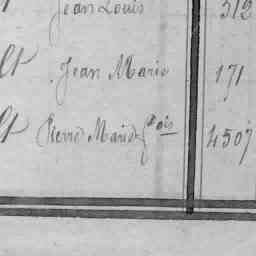 Jean Louis 312
lt Jean Marie 171
lt Pierre Marie fois 4507